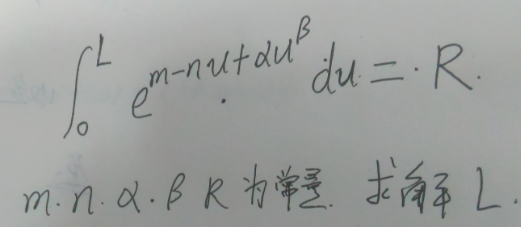 ∫₀ᴸ e^{m-nu+αu^β} du = R.
m.n.α.β R 为常量. 求解 L.